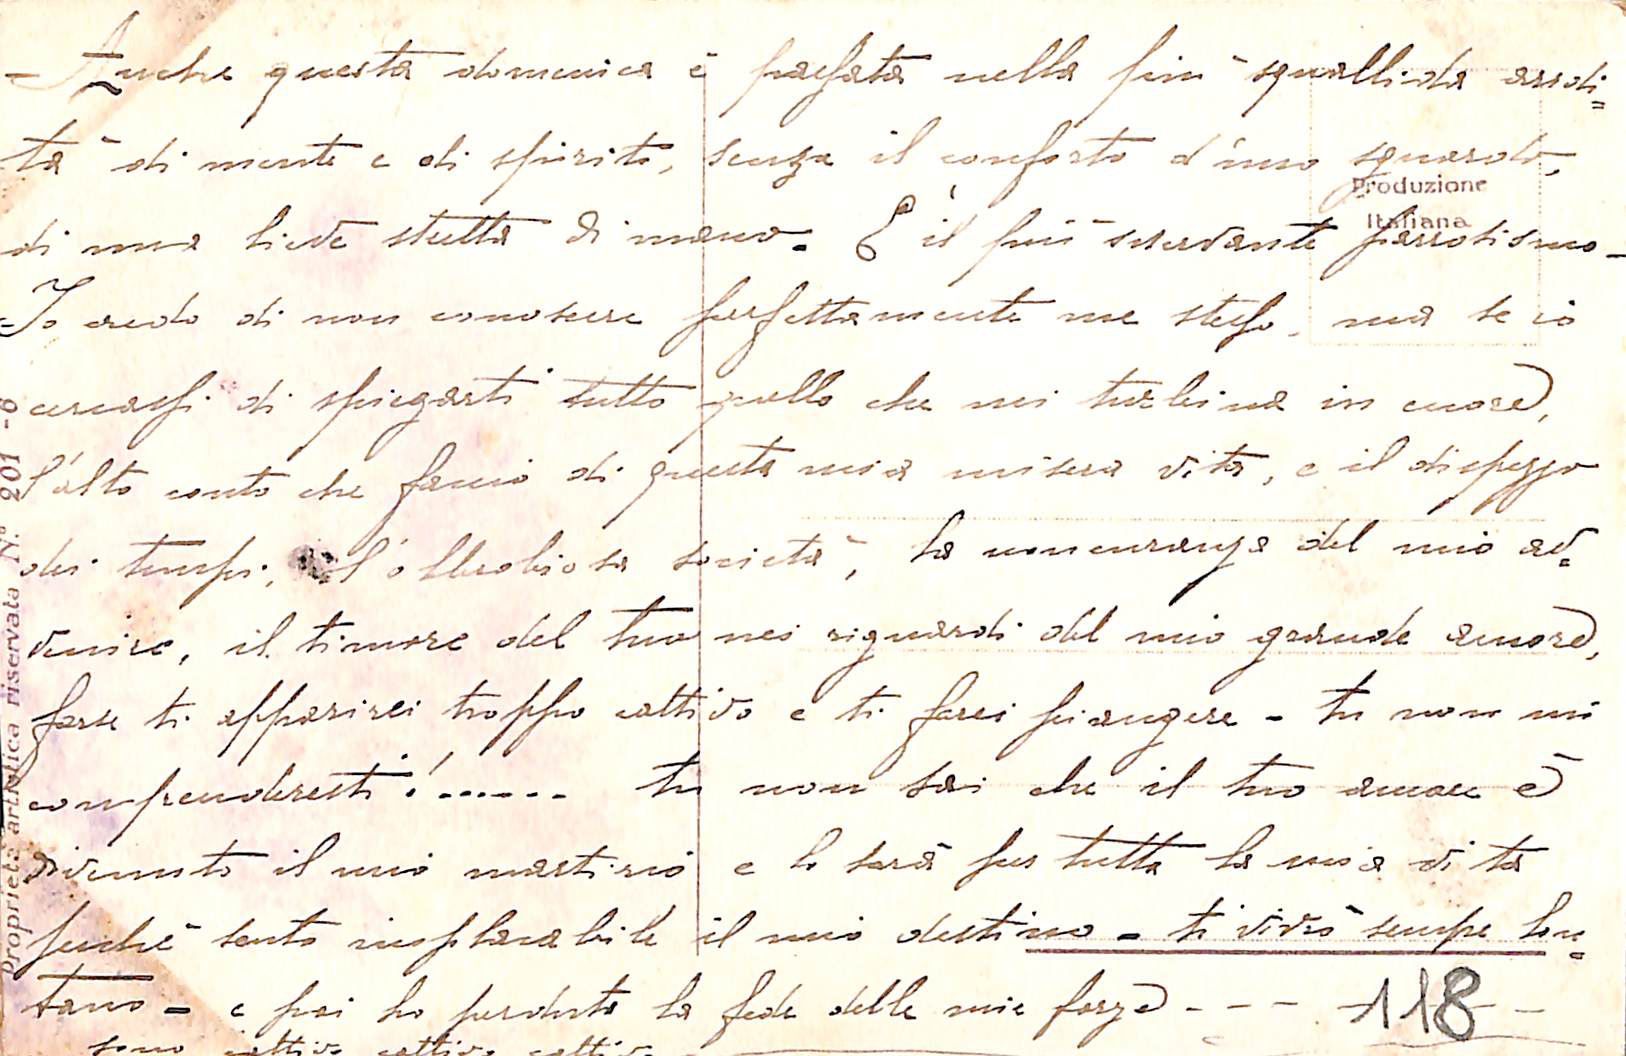 - Anche questa domenica è passata nella più squallida aridi=
tà di mente e di spirito, senza il conforto d'uno sguardo,
di una lieve stretta di mano. È il più snervante parrotismo -
Produzione
Italiana
- Io credo di non conoscere perfettamente me stesso, ma se io
cercassi di spiegarti tutto quello che mi turbina in cuore,
l'alto conto che faccio di questa mia misera vita, e il disprezzo
dei tempi, l'obbrobriosa società, la noncuranza del mio av=
venire, il timore del tuo nei riguardi del mio grande amore,
forse ti apparirei troppo cattivo e ti farei piangere - tu non mi
comprenderesti!...... tu non sai che il tuo amore è
divenuto il mio martirio e lo sarà per tutta la mia vita
perché sento implacabile il mio destino - ti vivrò sempre lon=
tano - e poi ho perduto la fede delle mie forze - - - -
sono cattivo cattivo cattivo
118
Proprietà artistica riservata N.° 201-6